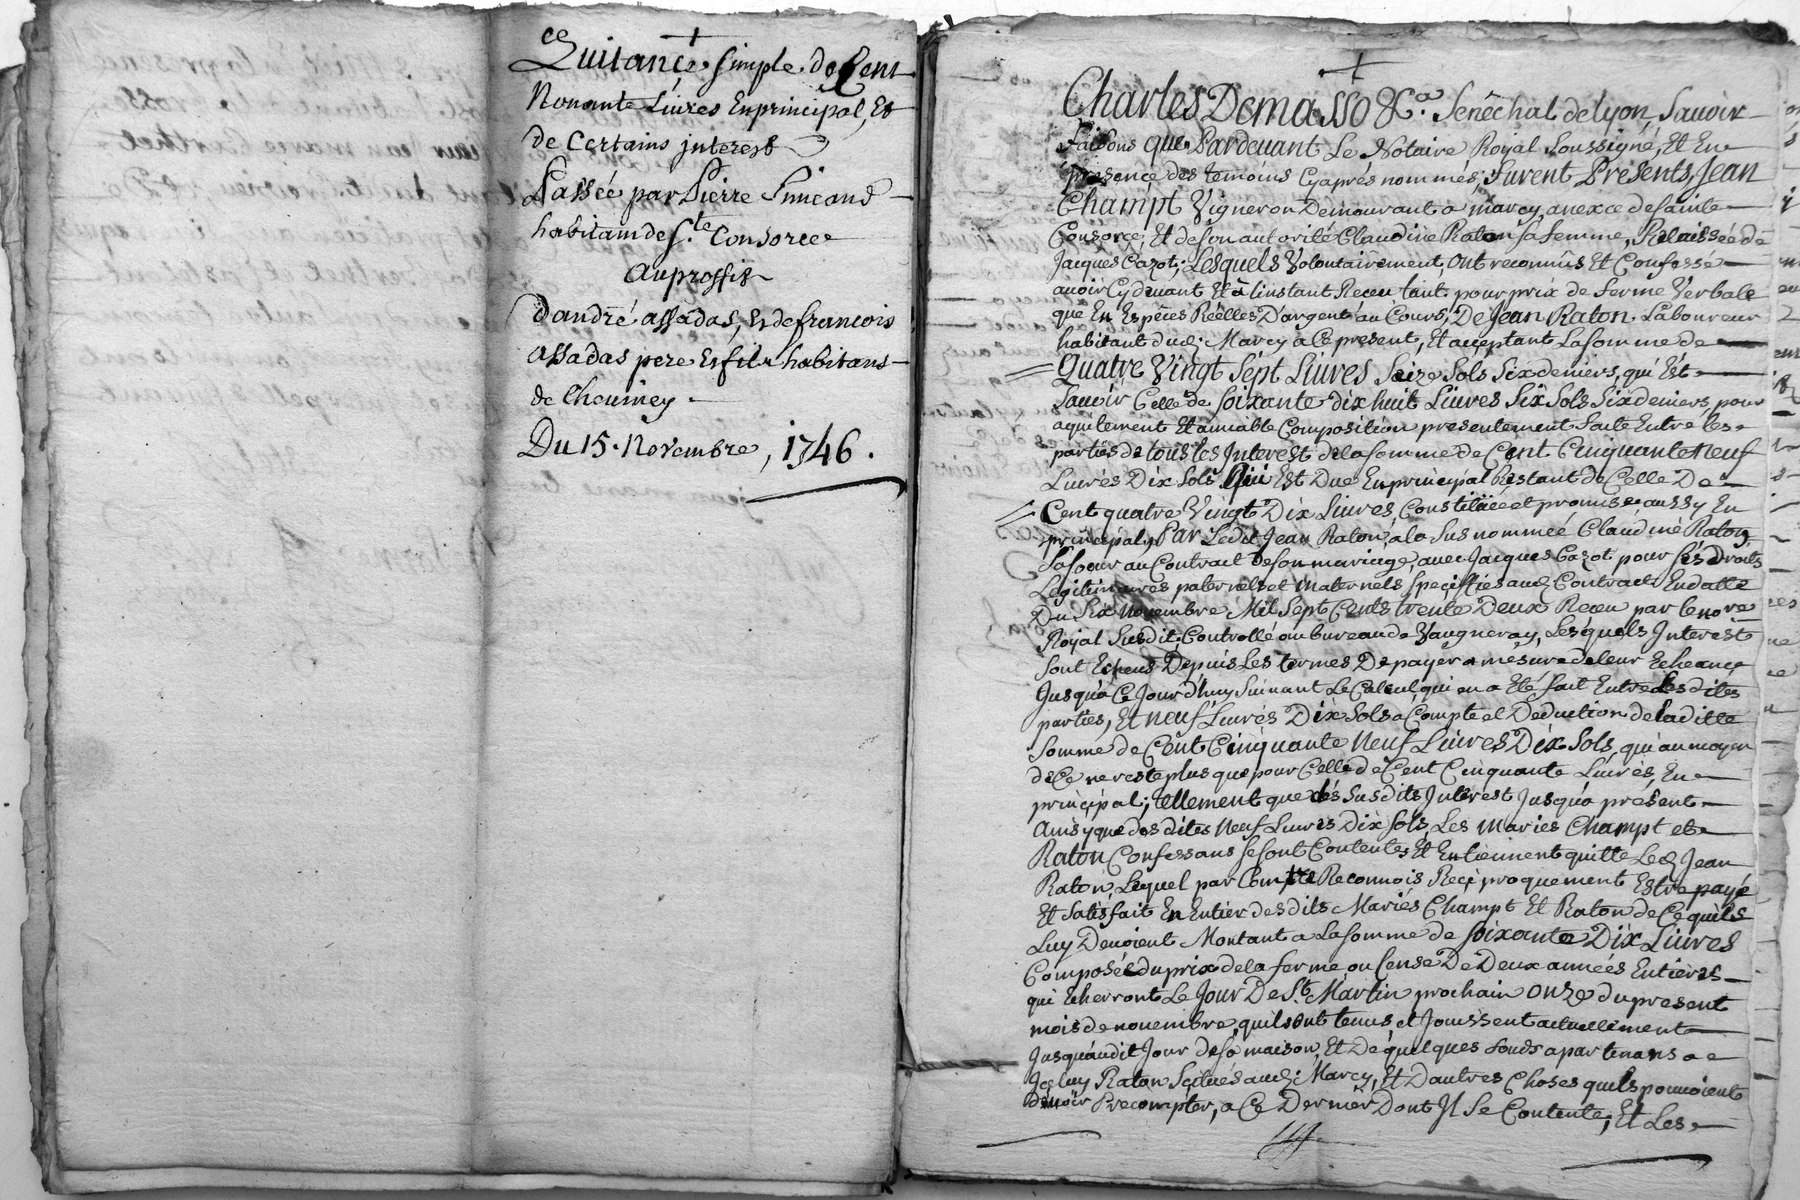 Quitance simple de Cent
Nonante Livres En principal, Et
de Certains jnterest
Passée par Pierre Simeand
habitant de S.te Consorce
au proffit
d'andré assadas, Et de francois
assadas pere Et fils habitans
de Cheuiney
Du 15. Novembre, 1746.
Charles Demasso &a. Senéchal de lyon, Sauoir
faisons que Pardeuant Le Notaire Royal Soussigné, Et En
présence des temoins Cyaprés nommés, furent Présents, Jean
Champt Vigneron Demeurant a marcy, anexce de Sainte
Consorce, Et de Son autorité Claudine Raton Sa femme, Relaissée de
Jacques Cazot; Lesquels Volontairement, ont reconnûs Et Confessé
auoir Cydeuant Et à Linstant Receu tant pour prix de ferme Verbale
que En Espéces Réelles D'argent au Cours, De Jean Raton. Laboureur
habitant dud. Marcy a Ce present, Et acceptant La Somme de
Quatre Vingt Sept Liures Seize Sols Six deniers, qui Est
Sauoir Celle de Soixante dix huit Liures Six Sols Six deniers, pour
aquitement Et amiable Composition presentement faite Entre les
parties de tous les Jnterest de la Somme de Cent Cinquante Neuf
Liures Dix Sols Qui Est Due En principal Restant de Celle De
Cent quatre Vingt Dix Liures, Constitüée et promise aussy En
principal, Par Ledit Jean Raton, a la Sus nommée Claudine Raton
Sa Soeur au Contrait de Son mariage, auec Jacques Cazot pour Ses Droits
Légitimaires paternels et Maternels Specifiés aud. Contract En datte
Du Six Novembre Mil Sept Cents trente Deux Receu par le no.re
Royal Susdit, Controllé au bureau de Vaugneray, Lesquels Jnterest
Sont Echeus Depuis Les termes De payer a mesure de leur Echeance
Jusqu'a Ce Jour d'huy Suiuant Le Calcul qui en a Eté fait Entre Lesdites
parties, Et neuf Liures Dix Sols a Compte et Deduction de Laditte
Somme de Cent Cinquante Neuf Liures Dix Sols, qui au moyen
de Ce ne reste plus que pour Celle de Cent Cinquante Liures, En
principal; tellement que des Susdits Jnterest Jusqu'a présent
Ainsy que des dites Neuf Liures Dix Sols, Les Mariés Champt et
Raton Confessans Se Sont Contentes Et En tiennent quitte Led. Jean
Raton, Lequel par Contre Reconnois Reçiproquement Estre payé
Et Satisfait En Entier desdits Mariés Champt Et Raton de Ce quils
Luy Devoient Montant a La Somme de Soixante Dix Liures
Composée du prix de la ferme ou Cense De Deux années Entieres
qui Echerront Le Jour De S.t Martin prochain onze du present
mois de novembre, quils ont tenus et Jouissent actuellement
Jusquaudit Jour de Sa maison, Et De quelques fonds apartenans a
Jceluy Raton Scitués aud. Marcy, Et D'autres Choses quils pouuoient
Deuoir Precompter, a Ce Dernier Dont Jl Se Contente, Et Les